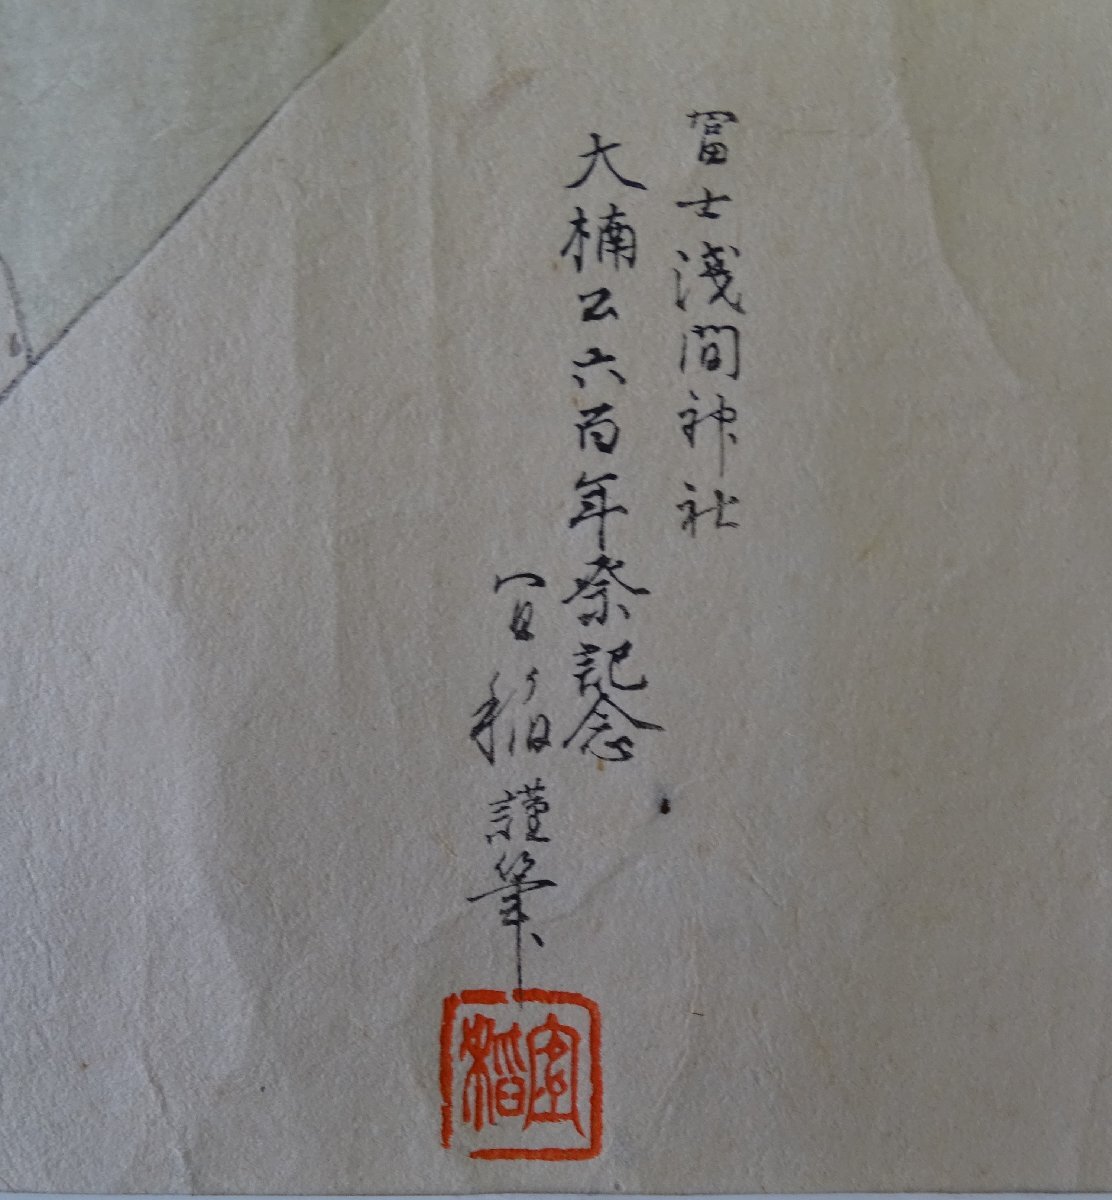 冨士淺間神社
大楠公六百年祭記念
宜稲謹筆